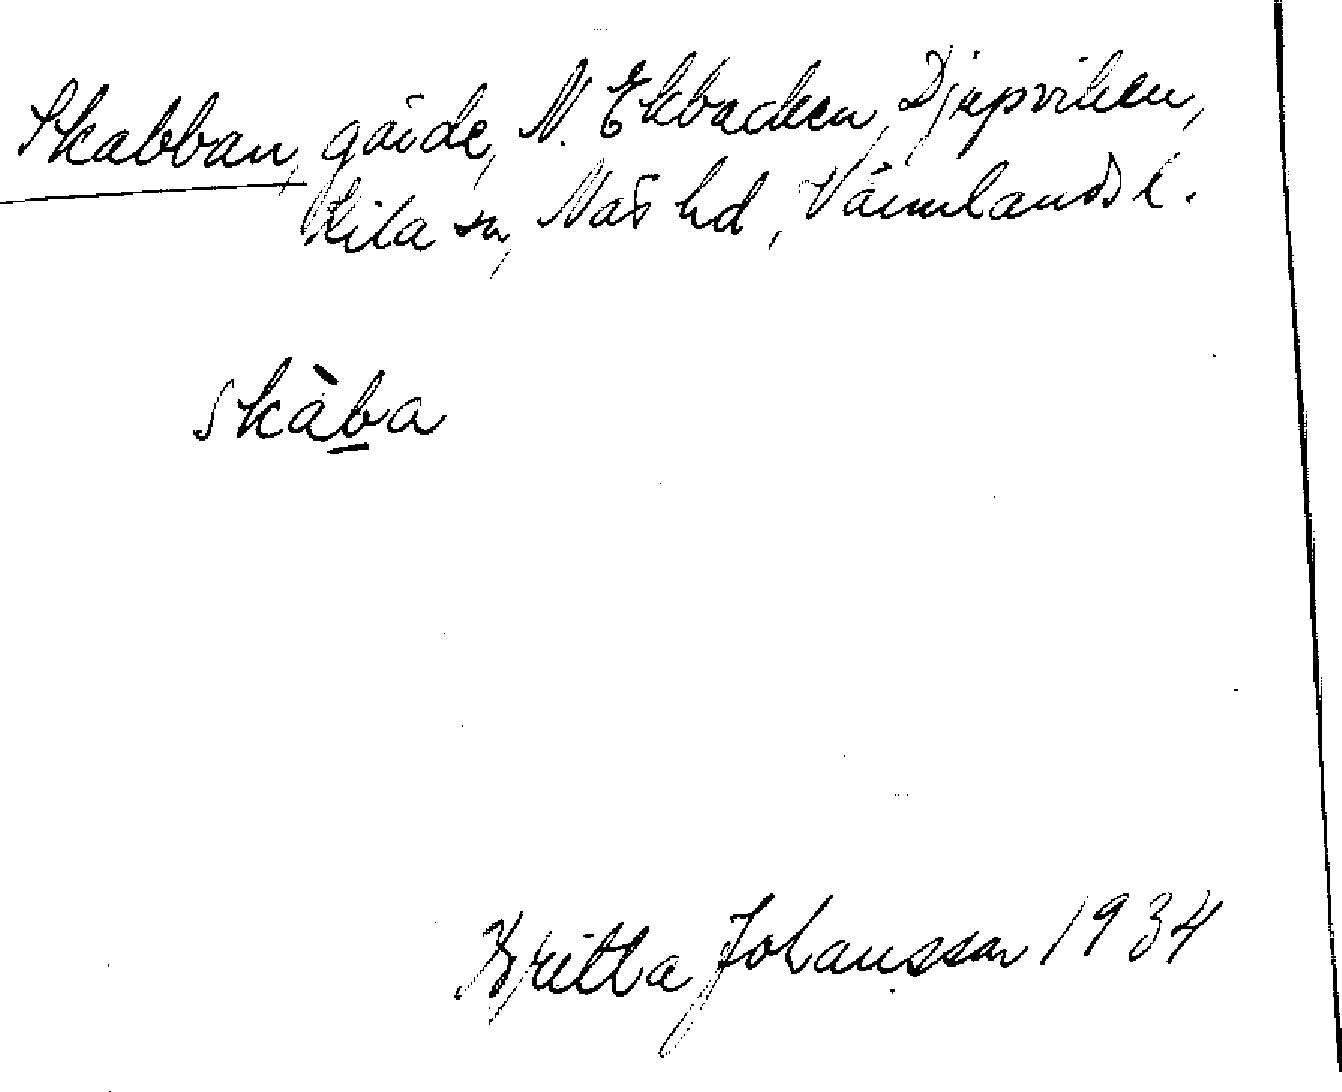 Skabban, gärde, N. Ekbacken, Djupviken,
Kila sn, Näs hd, Värmlands l.
skàba
Britta Johansson 1934